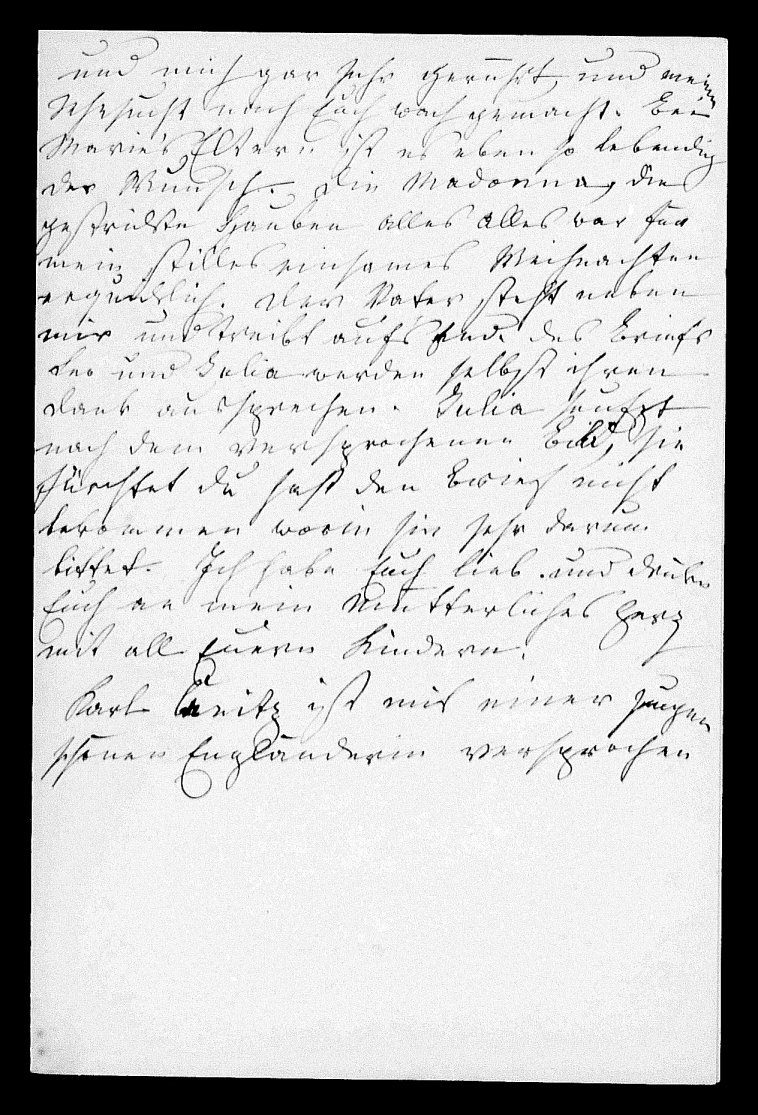 und mich gar sehr gerührt, und meine
Sehnsucht nach Euch wach gemacht. Bei
Marie's Eltern ist es eben so lebendig
der Wunsch. Die Madonna, die
gestrickte Hauben alles alles war für
mein stilles einsames Weihnachten
erquicklich. Der Vater steht neben
mir und treibt aufs End. des Briefs
Leo und Julia werden selbst ihren
Dank aussprechen. Julia seufzt
nach dem versprochenen Bild, sie
fürchtet du hast den Brief nicht
bekommen worin sie sehr darum
bittet. Ich habe Euch lieb und drücke
Euch an mein Mütterliches Herz
mit all Euern Kindern.
Karl ist mit einer jungen
schönen Engländerin versprochen